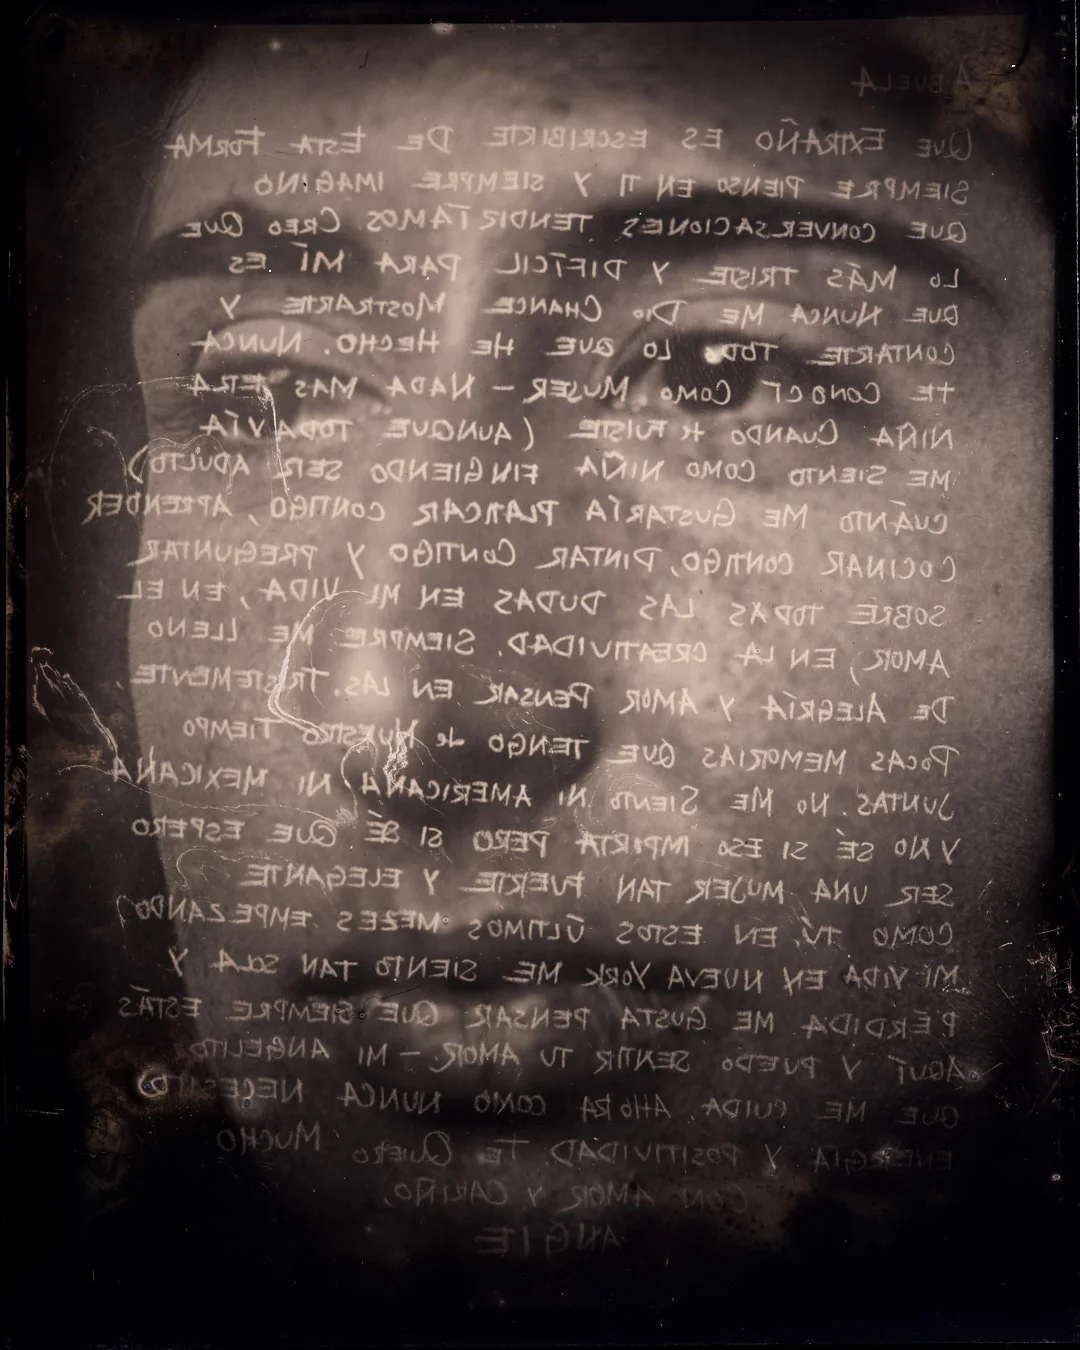 ABUELA
QUE EXTRAÑO ES ESCRIBIRTE DE ESTA FORMA.
SIEMPRE PIENSO EN TI Y SIEMPRE IMAGINO
QUE CONVERSACIONES TENDIRÍAMOS. CREO QUE
LO MÁS TRISTE Y DIFÍCIL PARA MÍ ES
QUE NUNCA ME DIO CHANCE MOSTRARTE Y
CONTARTE TODO LO QUE HE HECHO. NUNCA
TE CONOCÍ COMO MUJER - NADA MAS ERA
NIÑA CUANDO FUISTE (AUNQUE TODAVÍA
ME SIENTO COMO NIÑA FINGIENDO SER ADULTO)
CUÁNTO ME GUSTARÍA PLATICAR CONTIGO, APRENDER
COCINAR CONTIGO, PINTAR CONTIGO Y PREGUNTAR
SOBRE TODAS LAS DUDAS EN MI VIDA, EN EL
AMOR, EN LA CREATIVIDAD. SIEMPRE ME LLENO
DE ALEGRÍA Y AMOR PENSAR EN LAS. TRISTEMENTE,
POCAS MEMORIAS QUE TENGO de NUESTRO TIEMPO
JUNTAS. NO ME SIENTO NI AMERICANA, NI MEXICANA
Y NO SÉ SI ESO IMPIRTA PERO SI SÉ QUE ESPERO
SER UNA MUJER TAN FUERTE Y ELEGANTE
COMO TÚ. EN ESTOS ÚLTIMOS MEZES EMPEZANDO
MI VIDA EN NUEVA YORK ME SIENTO TAN SOLA Y
PERDIDA. ME GUSTA PENSAR QUE SIEMPRE ESTÁS
AQUÍ Y PUEDO SENTIR TU AMOR. - MI ANGELITO
QUE ME CUIDA. AHORA COMO NUNCA NECESITO
ENERGÍA Y POSITIVIDAD. TE QUIERO MUCHO
CON AMOR Y CARIÑO,
ANGIE